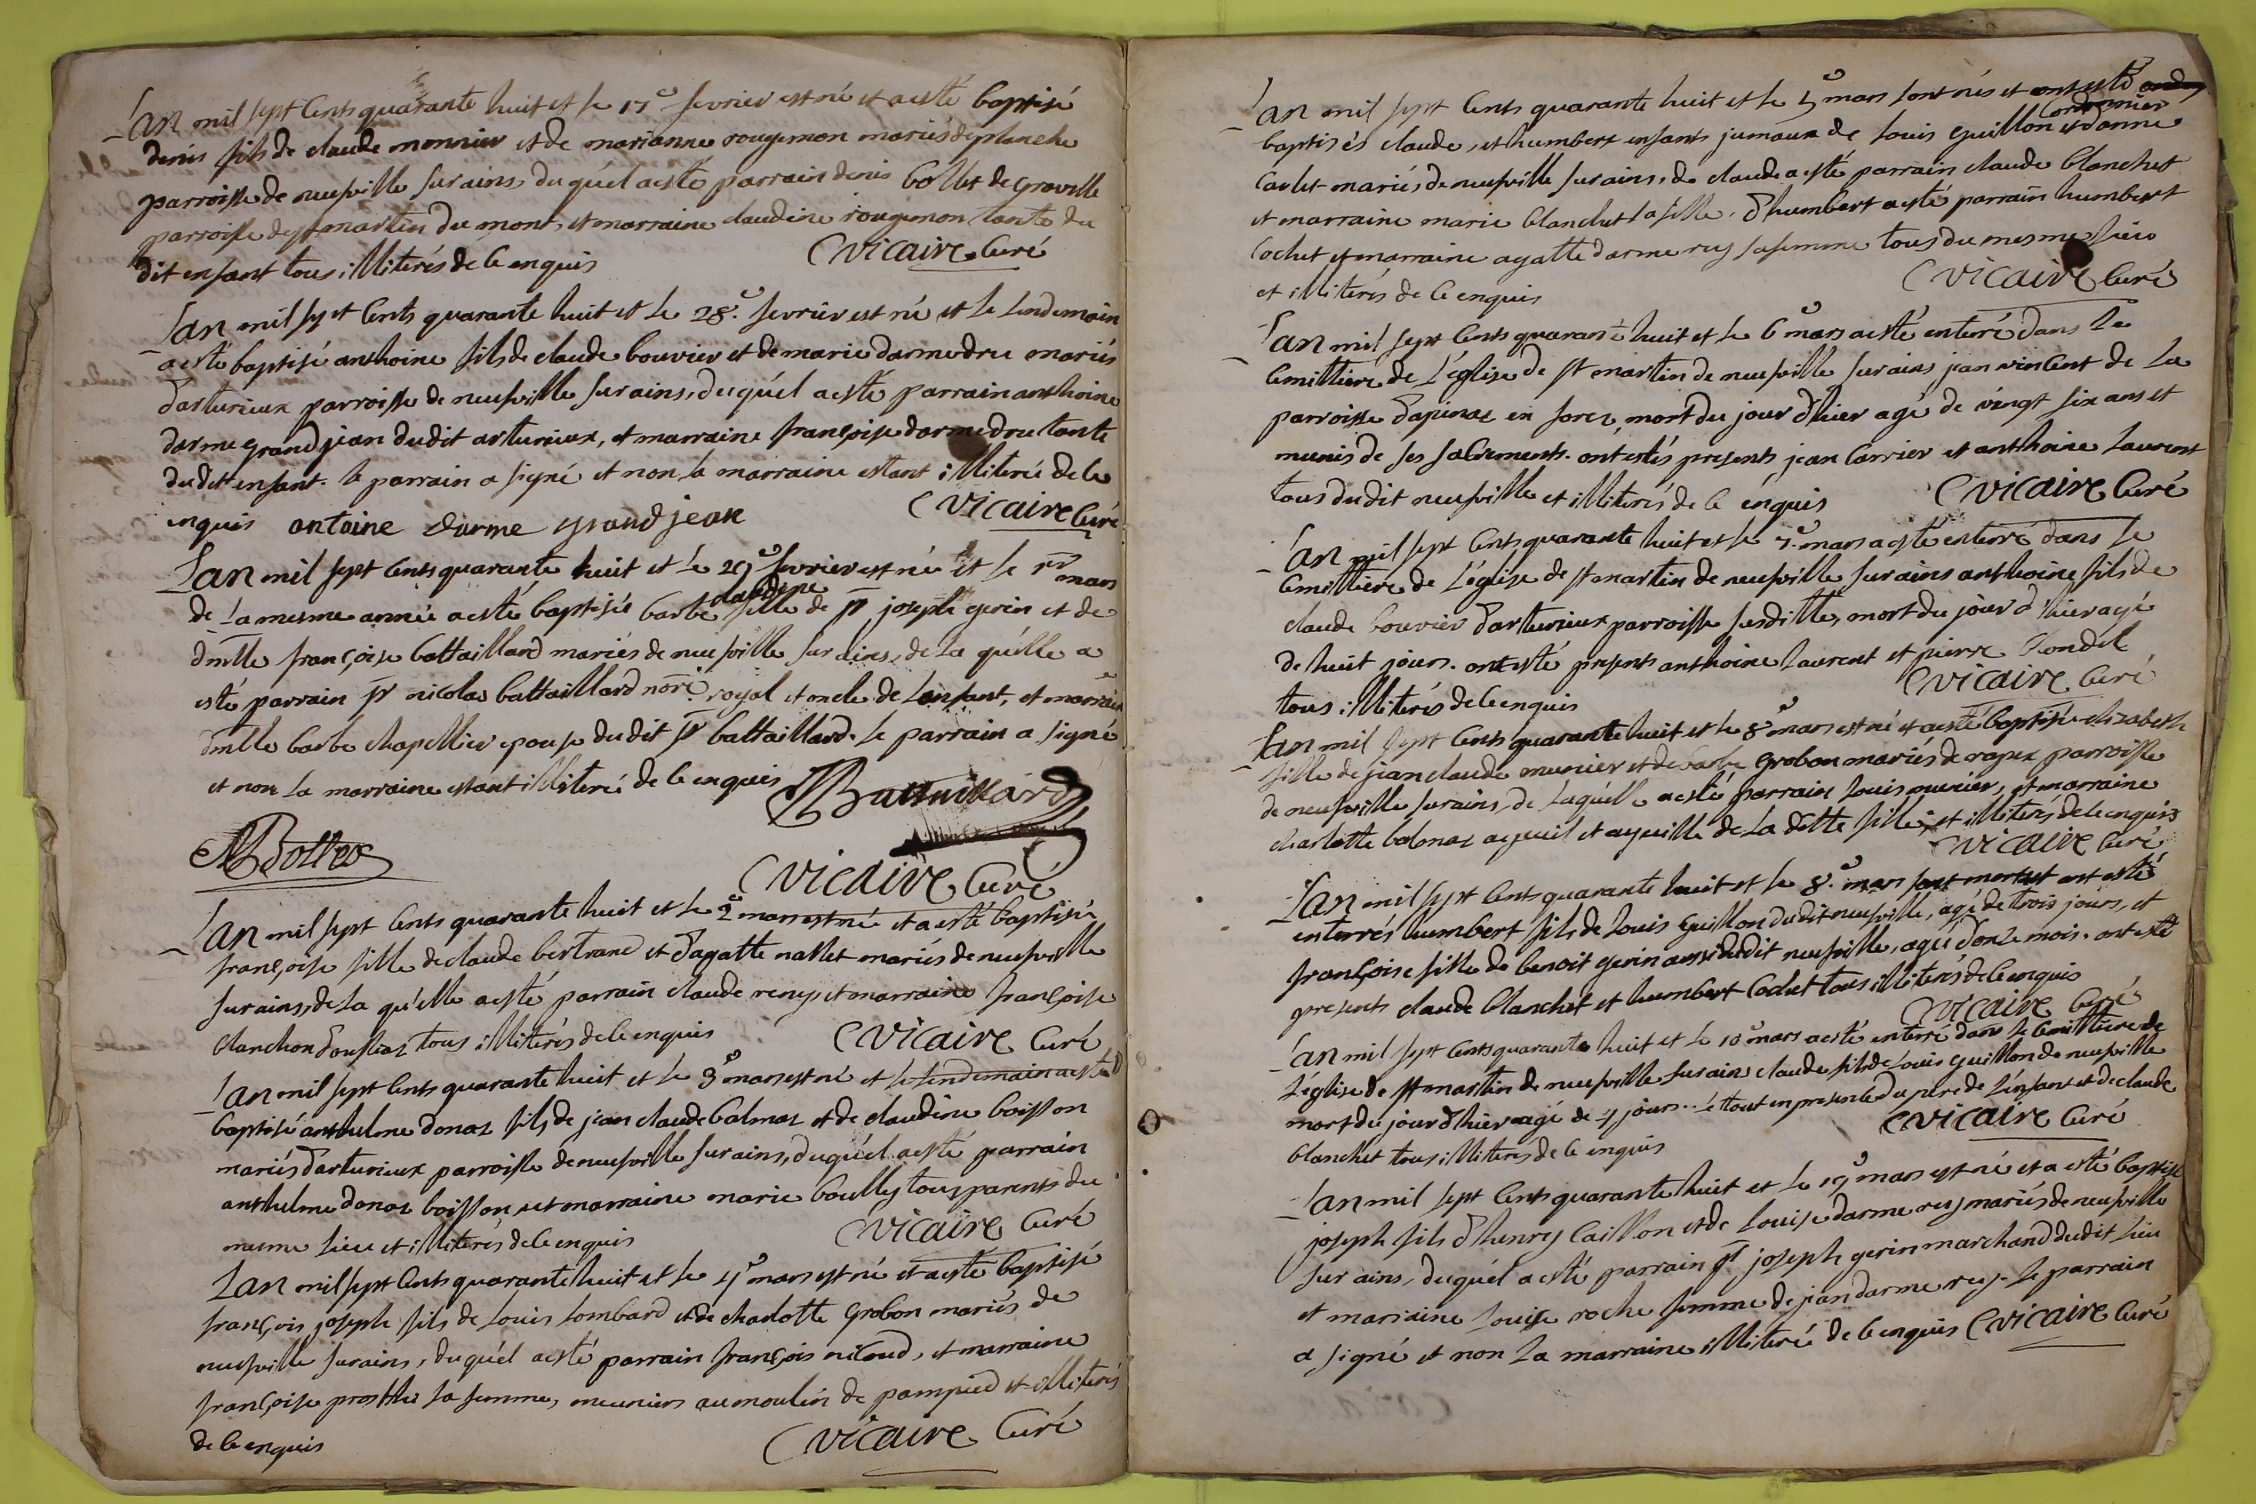 Lan mil sept Cents quarante huit et le 17e fevrier est né et a esté baptisé
denis fils de claude monnier et de marianne rougemon mariés de planche
parroisse de neufville sur ains, du quél a esté parrain denis bollet de groville
parroisse de st martin du mont, et marraine claudine rougemon tante du
dit enfant tous illiterés de ce enquis Vicaire Curé
Lan mil sept Cents quarante huit et le 28e fevrier est né et le lendemain
a esté baptisé anthoine fils de claude bouvier et de marie darmedru mariés
d'arturieux parroisse de neufville sur ains, du quél a esté parrain anthoine
darme grandjean dudit arturieux, et marraine françoise darmedru tante
dudit enfant. le parrain a signé et non la marraine estant illiterée de ce
enquis antoine darme grand jean Vicaire Curé
Lan mil sept Cents quarante huit et le 29e fevrier est né et le 1er mars
de la mesme année a esté baptisée barbe claudine fille de sr joseph gerin et de
dmlle françoise battaillard mariés de neufville sur ains, de la quélle a
esté parrain sr nicolas battaillard nore royal et oncle de Lenfant, et marraine
dmlle barbe chapellier epouse dudit sr battaillard. le parrain a signé
et non la marraine estant illiteré de ce enquis Battaillard
Vicaire Curé
Lan mil sept Cents quarante huit et le 2e mars est né et a esté baptisée
françoise fille de claude bertrand et d'agatte nallet mariés de neufville
sur ains, de la quélle a esté parrain claude reney et marraine françoise
blanchon tous illiterés de ce enquis Vicaire Curé
Lan mil sept Cents quarante huit et le 3e mars est né et le lendemain a esté
baptisé anthelme donat fils de jean claude balmaz et de claudine boisson
mariés d'arturieux parroisse de neufville sur ains, du quél a esté parrain
anthelme donat boisson, et marraine marie boully tous parents du
mesme lieu et illiterés de ce enquis Vicaire Curé
Lan mil sept Cents quarante huit et le 4e mars est né et a esté baptisé
françois joseph fils de Louis lombard et de charlotte grobon mariés de
neufville sur ains, du quél a esté parrain françois nicoud, et marraine
françoise sa femme, meuniers au moulin de pampied et illiterés
de ce enquis Vicaire Curé
Lan mil sept Cents quarante huit et le 5e mars sont nés et ont esté
baptisés claude, et humbert enfants jumaux de Louis guillon et danne
mariés de neufville sur ains, de claude a esté parrain claude blanchet
et marraine marie blanchet sa fille. d'humbert a esté parrain humbert
Cochet et marraine agatte darme rey sa femme tous du mesme lieu
et illiterés de ce enquis Vicaire Curé
Lan mil sept Cents quarante huit et le 6e mars a esté enteré dans le
Cemittiere de L'église de st martin de neufville sur ains jean vincent de la
parroisse d'apinac en forez, mort du jour d'hier agé de vingt six ans et
munis de ses sacrements. ont estés presents jean Carrier et anthoine Laurent
tous dudit neufville et illiterés de ce enquis Vicaire Curé
Lan mil sept Cents quarante huit et le 7e mars a esté enterré dans le
Cemittiere de L'église de st martin de neufville sur ains anthoine fils de
claude bouvier d'arturieux parroisse susditte, mort du jour d'hier agé
de huit jours. ont esté presents anthoine Laurent et pierre blondel
tous illiterés de ce enquis Vicaire Curé
Lan mil sept Cents quarante huit et le 8e mars est né et a esté baptisée elizabeth
fille de jean claude munier et de barbe grobon mariés de rapex parroisse
de neufville sur ains, de laquélle a esté parrain Louis munier, et marraine
charlotte balmaz ayeuil et ayeuille de la ditte fille, et illiterés de ce enquis
Vicaire Curé
Lan mil sept Cents quarante huit et le 8e mars sont morts et ont esté
enterrés humbert fils de Louis guillon du dit neufville, agé de trois jours, et
françoise fille de benoit gerin aussi dudit neufville, agée d'onze mois. ont esté
presents claude blanchet et humbert Cochet tous illiterés de ce enquis
Vicaire Curé
Lan mil sept Cents quarante huit et le 10e mars a esté enterré dans le Cemittiere de
L'église de st martin de neufville sur ains claude fils de Louis guillon de neufville
mort du jour d'hier agé de 4 jours. Le tout en presence du pere de L'enfant et de claude
blanchet tous illiterés de ce enquis Vicaire Curé
Lan mil sept Cents quarante huit et le 19e mars est né et a esté baptisé
joseph fils d'henry Caillon et de Louise darme rey mariés de neufville
sur ains, du quél a esté parrain sr joseph gerin marchand dudit lieu
et marraine Louise roche femme de jean darme rey. le parrain
a signé et non la marraine illiteré de ce enquis Vicaire Curé